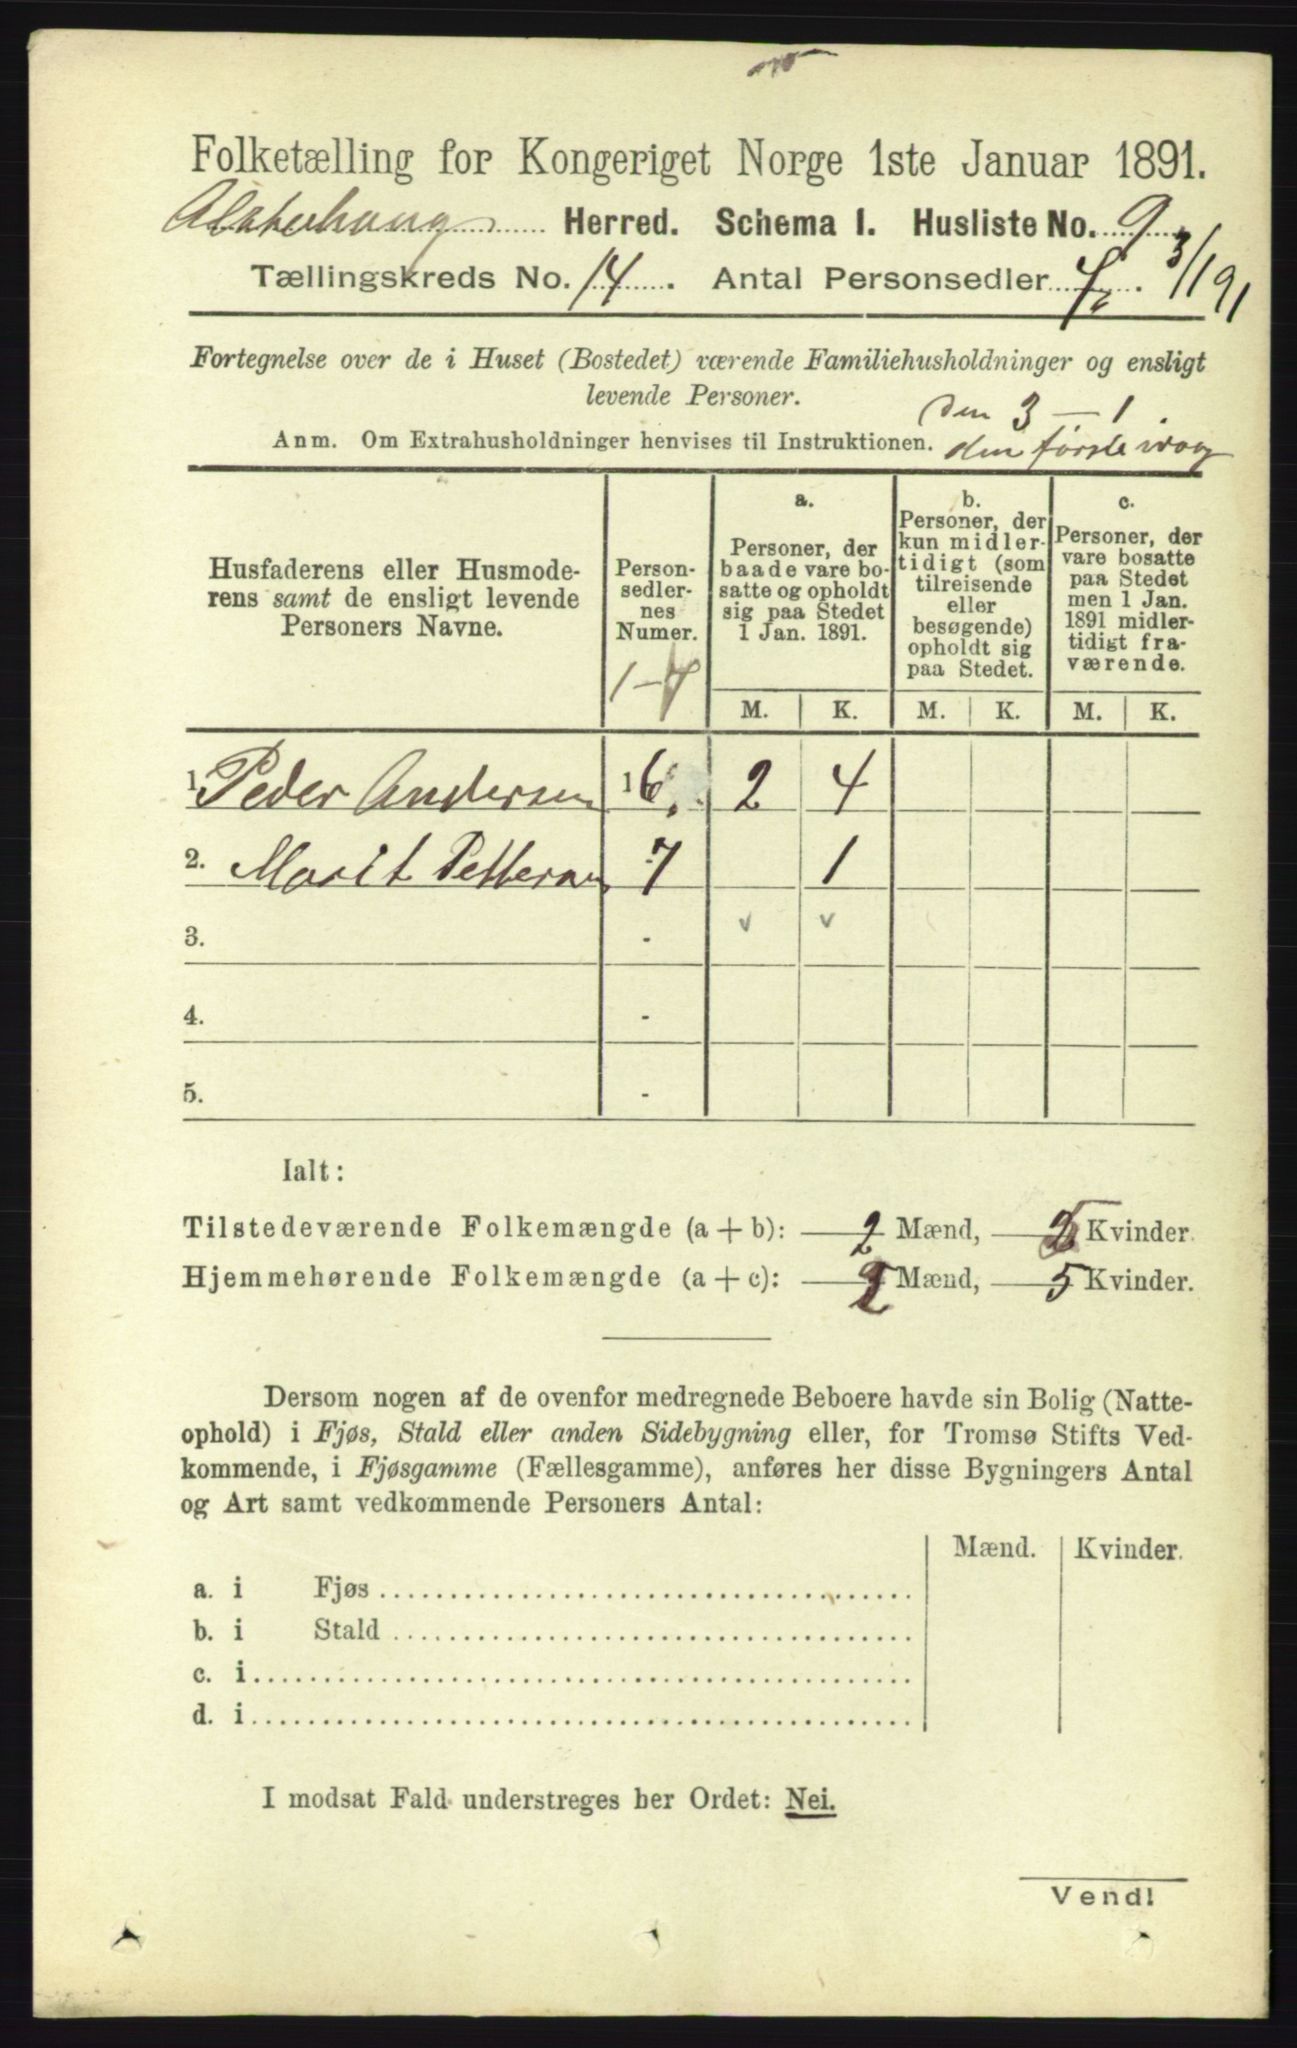 Folketælling for Kongeriget Norge 1ste Januar 1891.
Alstahaug Herred. Schema I. Husliste No. 9
Tællingskreds No. 14. Antal Personsedler 7. 3/1 91
Fortegnelse over de i Huset (Bostedet) værende Familiehusholdninger og ensligt
levende Personer.
den 3 – 1
Anm. Om Extrahusholdninger henvises til Instruktionen.
den første
Husfaderens eller Husmode-
rens samt de ensligt levende
Personers Navne.
Person-
sedler-
nes
Numer.
1–7
a.
Personer, der
baade vare bo-
satte og opholdt
sig paa Stedet
1 Jan. 1891.
b.
Personer, der
kun midler-
tidigt (som
tilreisende
eller
besøgende)
opholdt sig
paa Stedet.
c.
Personer, der
vare bosatte
paa Stedet
men 1 Jan.
1891 midler-
tidigt fra-
værende.
M. K. M. K. M. K.
1. Peder Andersen 1 6. 2 4
2. Marit Pettersen 7 1
3. - v v
4. -
5. -
Ialt:
Tilstedeværende Folkemængde (a + b): 2 Mænd, 5 Kvinder.
Hjemmehørende Folkemængde (a + c): 2 Mænd, 5 Kvinder.
Dersom nogen af de ovenfor medregnede Beboere havde sin Bolig (Natte-
ophold) i Fjøs, Stald eller anden Sidebygning eller, for Tromsø Stifts Ved-
kommende, i Fjøsgamme (Fællesgamme), anføres her disse Bygningers Antal
og Art samt vedkommende Personers Antal:
Mænd. Kvinder.
a. i Fjøs
b. i Stald
c. i
d. i
I modsat Fald understreges her Ordet: Nei.
Vend!